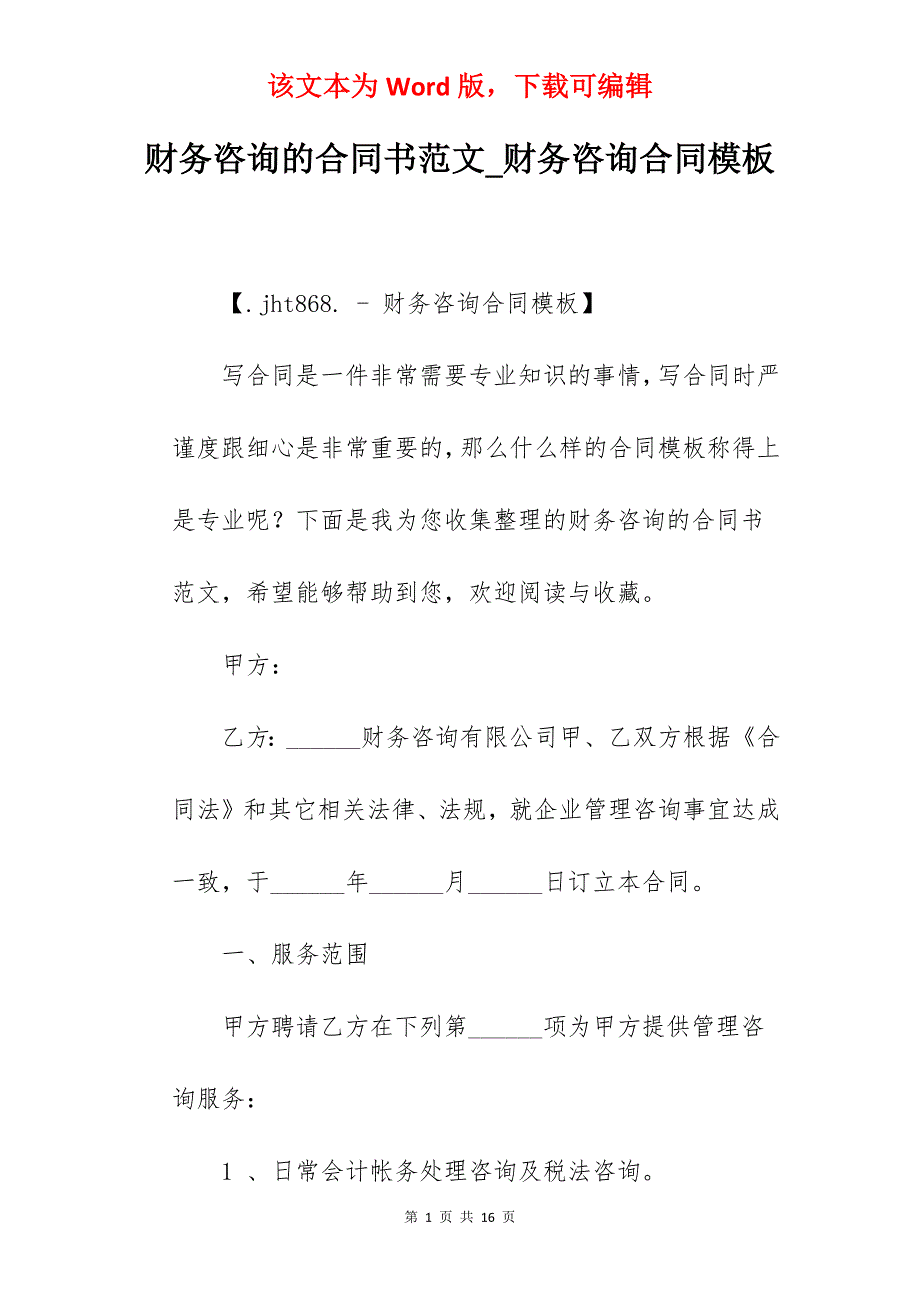 该文本为 Word 版，下载可编辑
财务咨询的合同书范文_财务咨询合同模板
【.jht868. - 财务咨询合同模板】
写合同是一件非常需要专业知识的事情,写合同时严
谨度跟细心是非常重要的,那么什么样的合同模板称得上
是专业呢？下面是我为您收集整理的财务咨询的合同书
范文，希望能够帮助到您，欢迎阅读与收藏。
甲方：
乙方：______财务咨询有限公司甲、乙双方根据《合
同法》和其它相关法律、法规，就企业管理咨询事宜达成
一致，于______年______月______日订立本合同。
一、服务范围
甲方聘请乙方在下列第______项为甲方提供管理咨
询服务：
1 、日常会计帐务处理咨询及税法咨询。
第 1 页 共 16 页